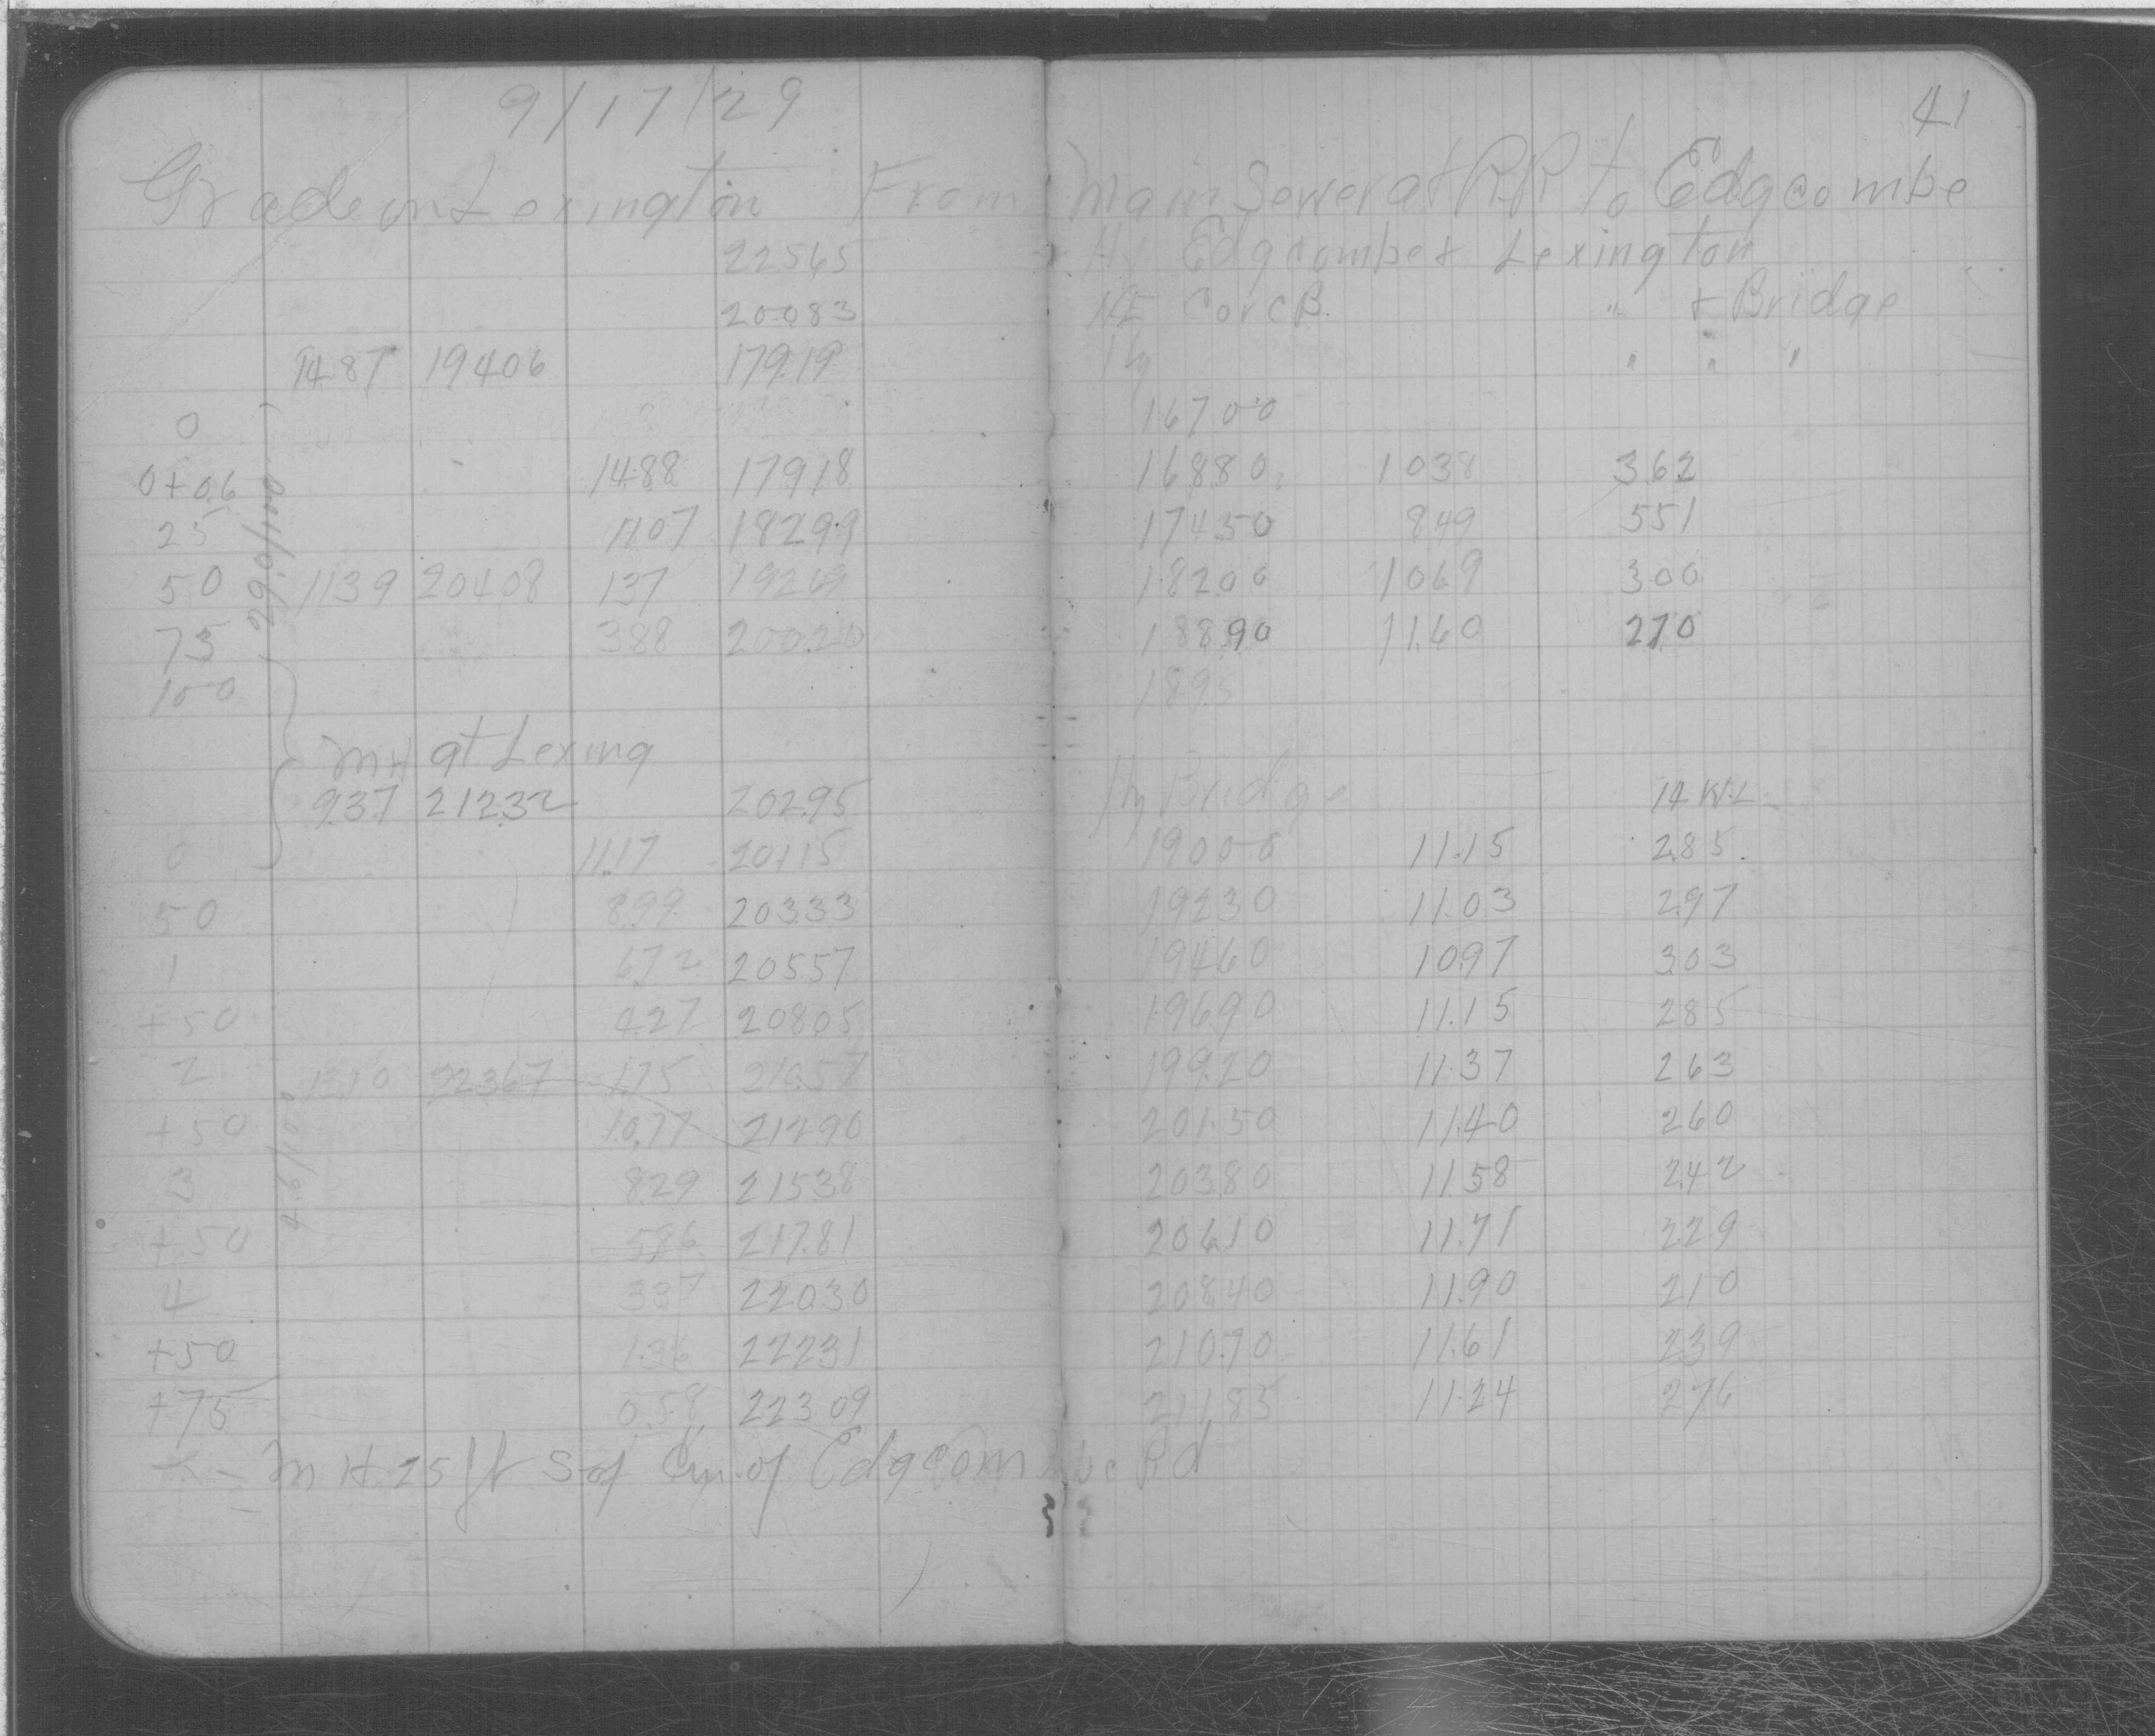 9/17/29
41
Grade on Lexington From Main Sewer at RR to Edgcombe
22565 Hy Edgcombe & Lexington
20083 NE Cor CB. " & Bridge
1487 19406 17919 Hy " " "
0 16700
0+06 1488 17918 16880 1038 362
25 1107 18299 17450 849 551
50 1139 20408 137 19269 18200 1069 300
75 388 20020 18890 11.60 270
100 1895
MH at Lexing
937 21232 20295 Hy Bridge 14 W.L.
0 11.17 20115 19000 11.15 285
50 899 20333 19230 11.03 297
1 672 20557 19460 1097 303
+50 427 20805 19690 11.15 285
2 1310 22367 175 21057 19920 11.37 263
+50 10.77 21290 20150 11.40 260
3 829 21538 20380 11.58 242
+50 586 21781 20610 11.71 229
4 337 22030 20840 11.90 210
+50 136 22231 21070 11.61 239
+75 0.58 22309 21185 11.24 276
MH. 25 ft S of Cen. of Edgcombe Rd
4.6/100